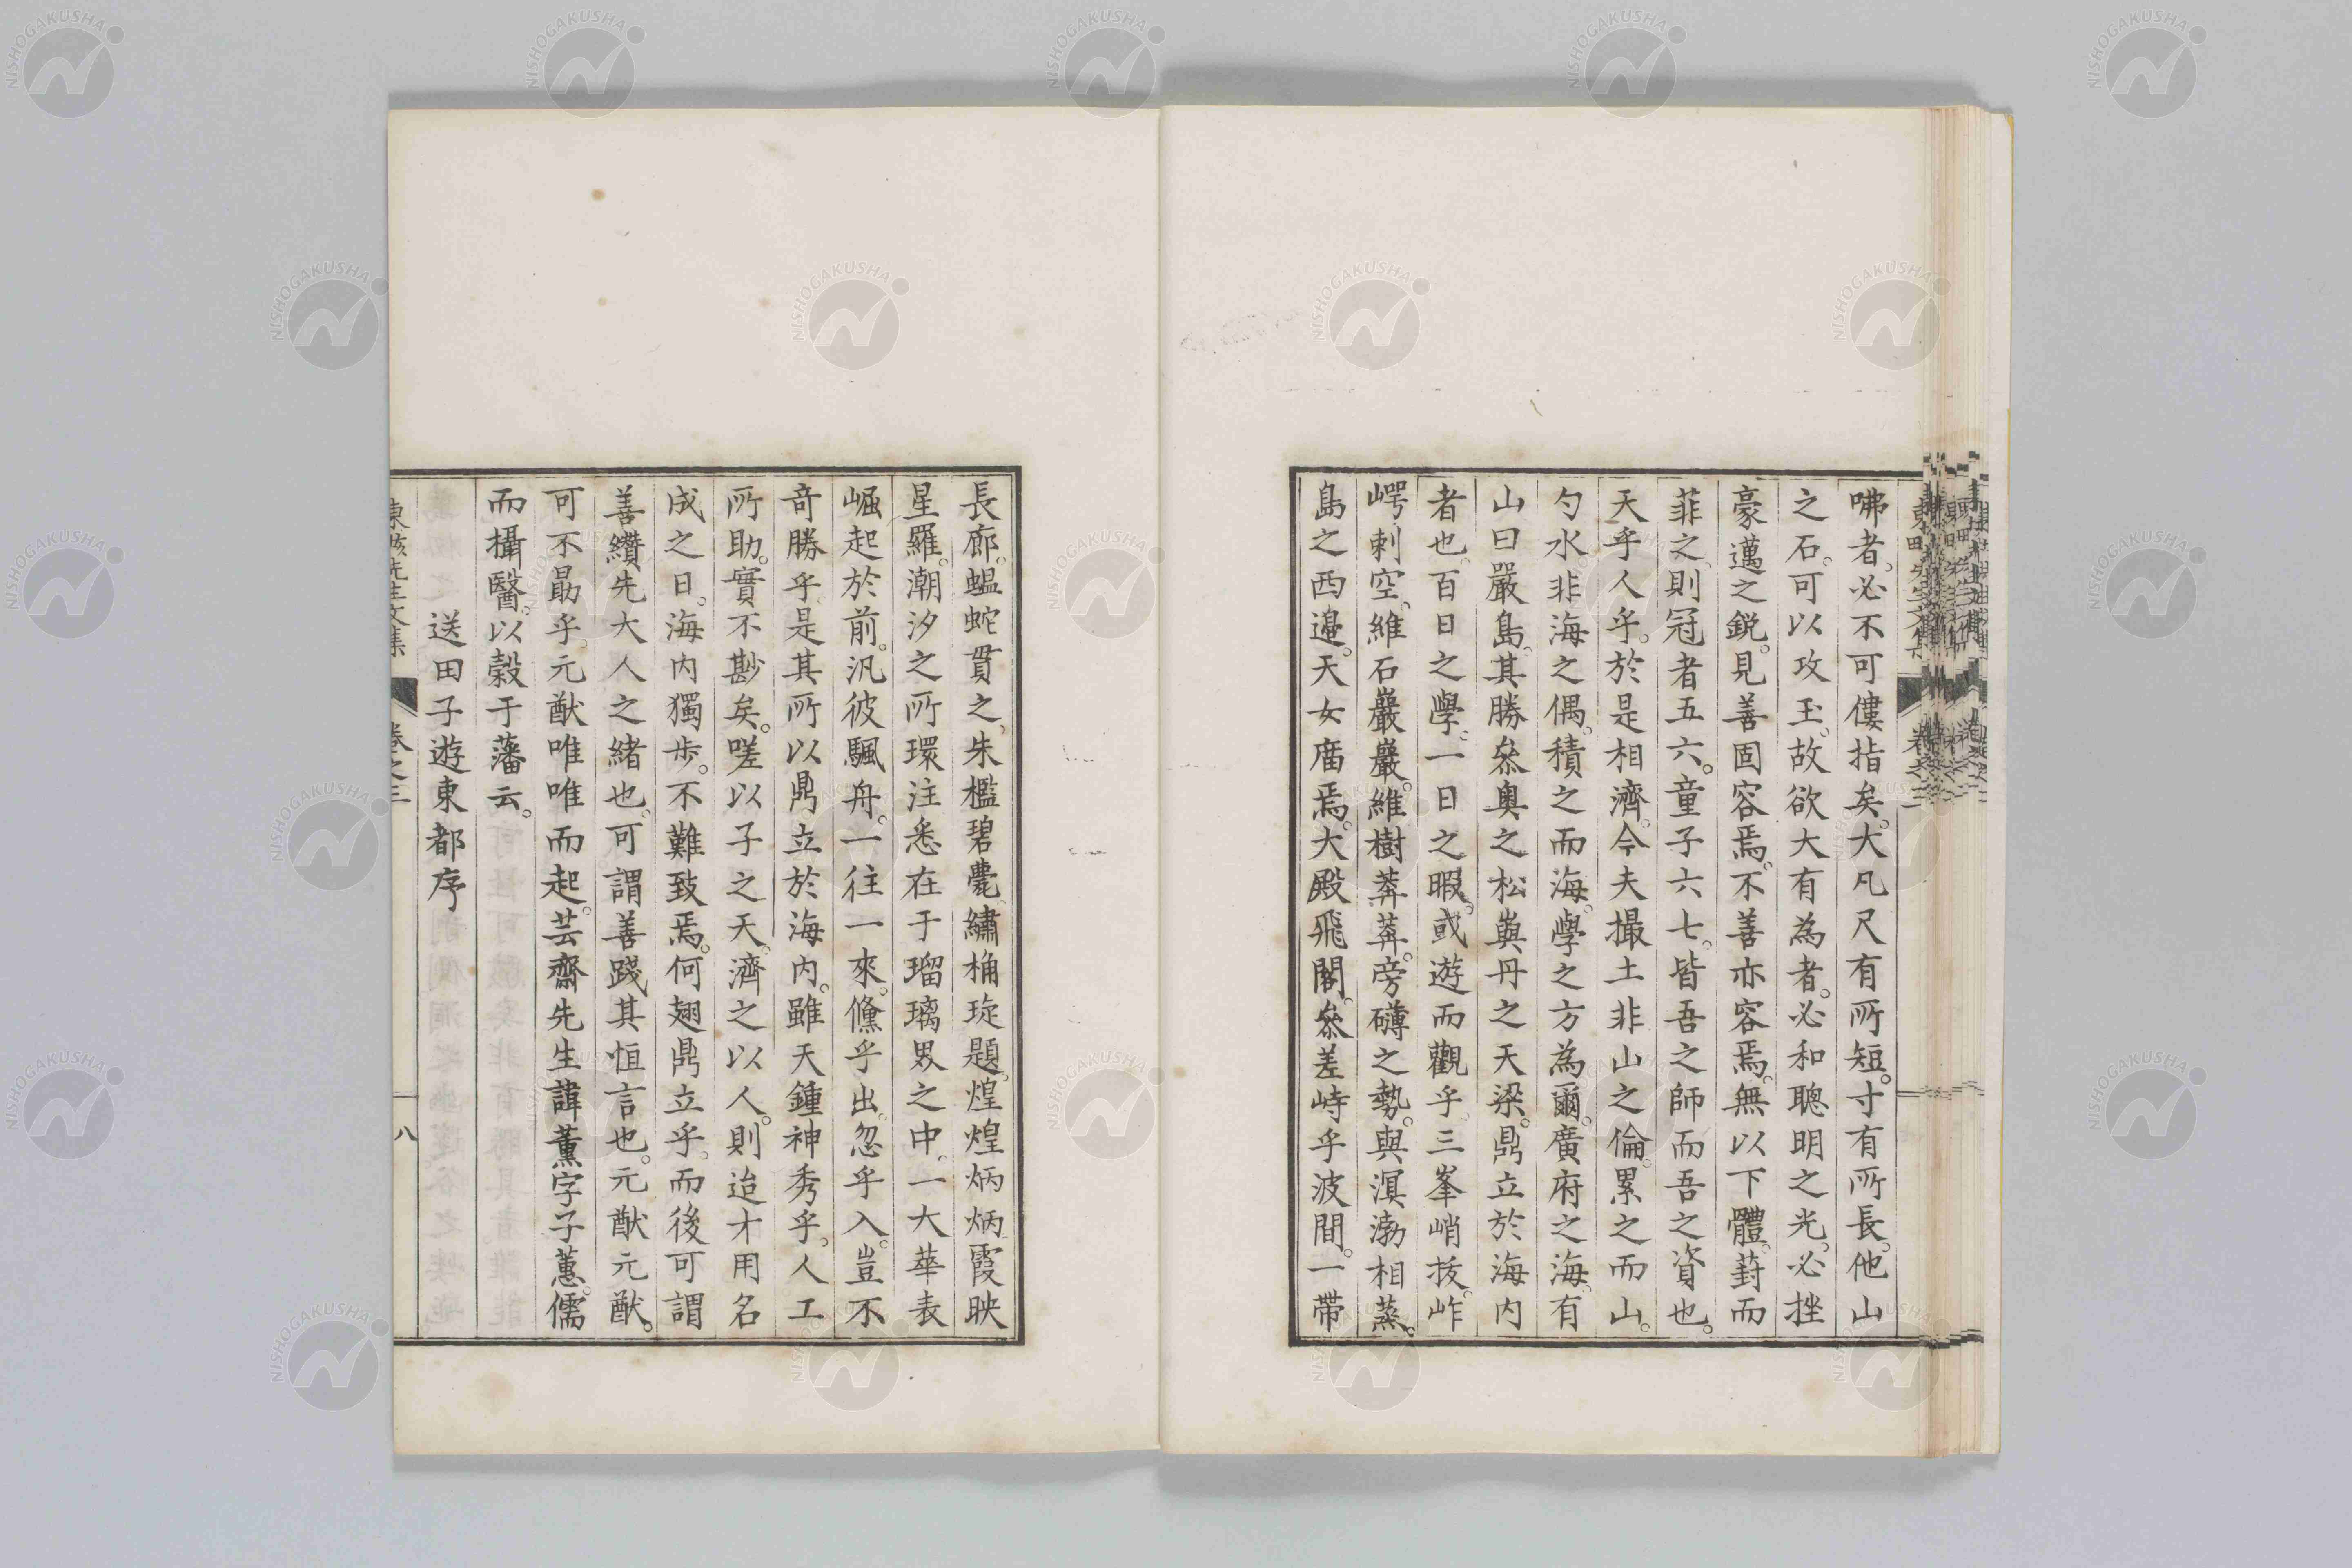 咈者。必不可僂指矣。大凡尺有所短。寸有所長。他山
之石。可以攻玉。故欲大有為者。必和聰明之光。必挫
豪邁之鋭。見善固容焉。不善亦容焉。無以下體。葑而
菲之。則冠者五六。童子六七。皆吾之師而吾之資也。
天乎人乎。於是相濟。今夫撮土非山之倫。累之而山。
勺水非海之偶。積之而海。學之方為爾。廣府之海。有
山曰嚴島。其勝叅奧之松嶼丹之天梁。鼎立於海内
者也。百日之學。一日之暇。或遊而觀乎。三峯峭拔。岞
崿刺空。維石巖巖。維樹莽莽。旁礴之勢。與溟渤相蒸。
島之西邉。天女廟焉。大殿飛閣。叅差峙乎波間。一帶
長廊。蝹蛇貫之。朱檻碧甍。繡桷琁題。煌煌炳炳。霞映
星羅。潮汐之所環注。悉在于瑠璃界之中。一大華表
崛起於前。汎彼颿舟。一往一來。儵乎出。忽乎入。豈不
奇勝乎。是其所以鼎立於海内。雖天鍾神秀乎。人工
所助。實不尠矣。嗟以子之天。濟之以人。則迨才用名
成之日。海内獨步。不難致焉。何翅鼎立乎。而後可謂
善纘先大人之緒也。可謂善踐其恒言也。元猷元猷。
可不勗乎。元猷唯唯而起。芸齋先生諱薫字子蕙。儒
而攝醫。以穀于藩云。
送田子遊東都序
東咳先生文集 卷之三 八